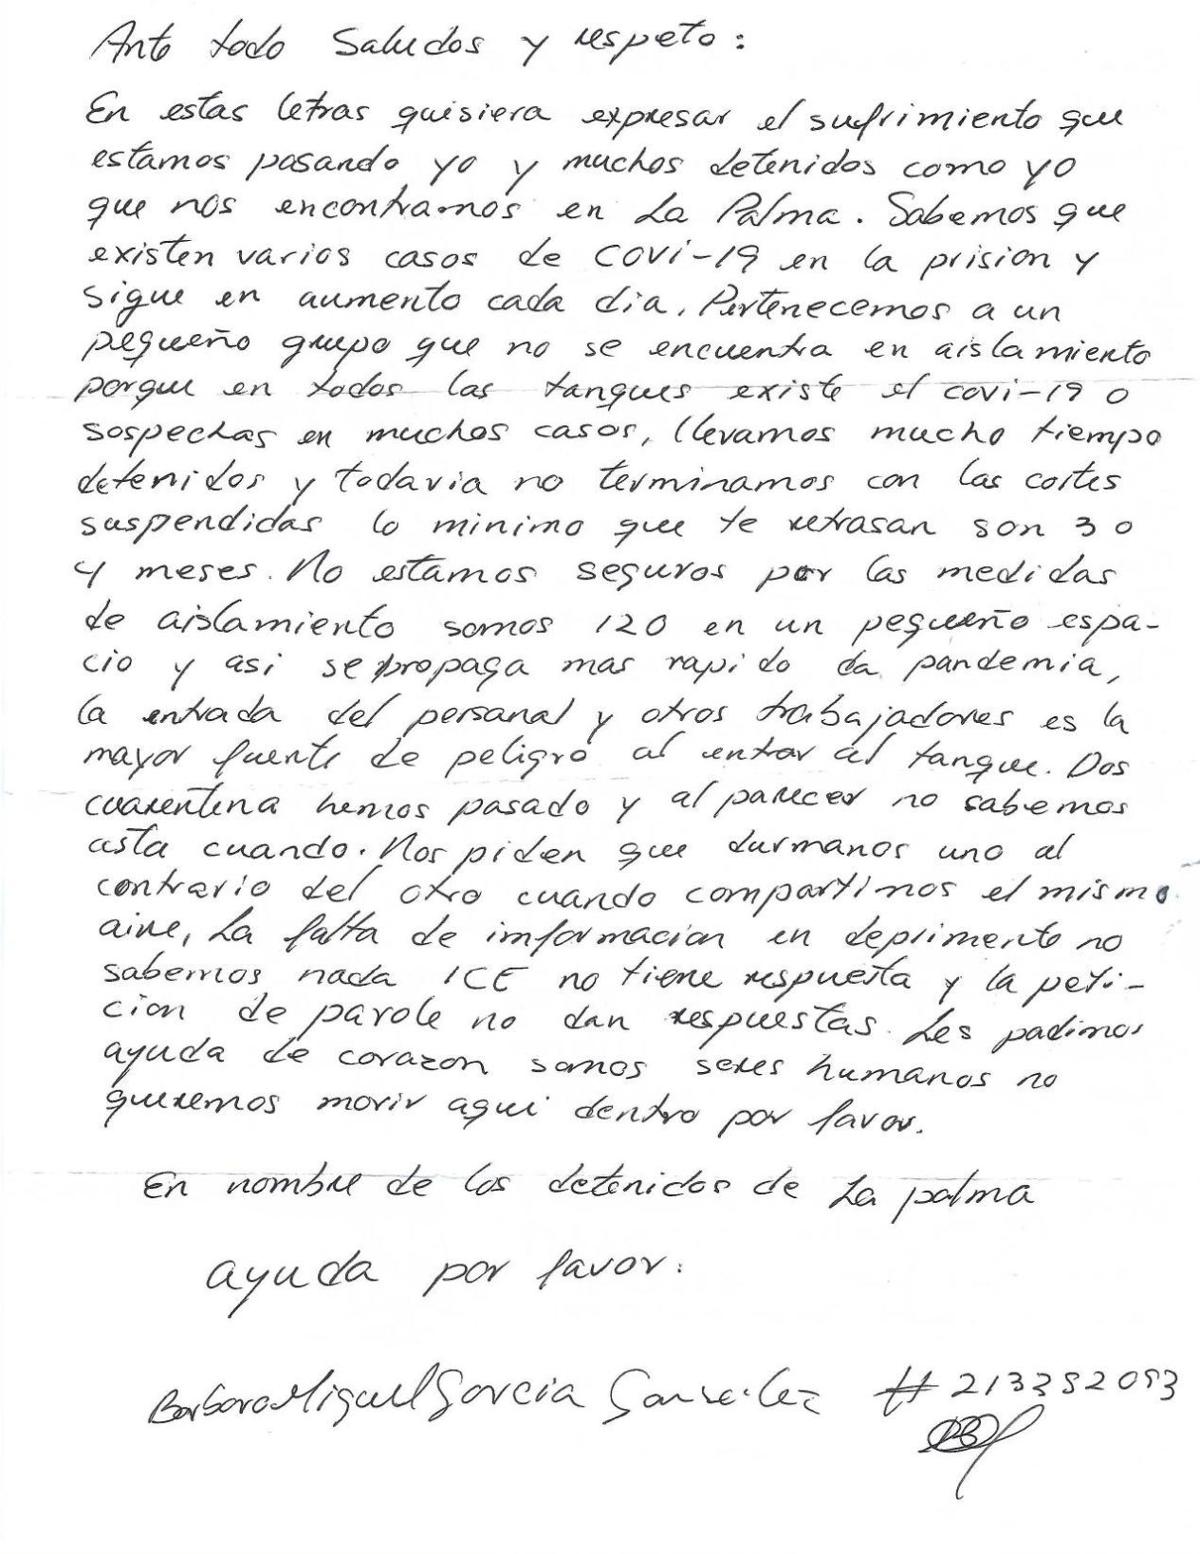 Ante todo Saludos y respeto:
En estas letras quisiera expresar el sufrimiento que
estamos pasando yo y muchos detenidos como yo
que nos encontramos en La Palma. Sabemos que
existen varios casos de covi-19 en la prision y
sigue en aumento cada dia. Pertenecemos a un
pequeño grupo que no se encuentra en aislamiento
porque en todos las tanques existe el covi-19 o
sospechas en muchos casos, llevamos mucho tiempo
detenidos y todavia no terminamos con las cortes
suspendidas lo minimo que te retrasan son 3 o
4 meses. No estamos seguros por las medidas
de aislamiento somos 120 en un pequeño espa-
cio y asi se propaga mas rapido la pandemia,
la entrada del personal y otros trabajadores es la
mayor fuente de peligro al entrar al tanque. Dos
cuarentena hemos pasado y al parecer no sabemos
asta cuando. Nos piden que durmanos uno al
contrario del otro cuando compartimos el mismo
aire, La falta de imformacion en deprimente no
sabemos nada ICE no tiene respuesta y la peti-
cion de parole no dan respuestas. Les pedimos
ayuda de corazon somos seres humanos no
queremos morir aqui dentro por favor.
En nombre de los detenidos de La palma
ayuda por favor.
Barbaro Miguel Garcia Gonzalez #